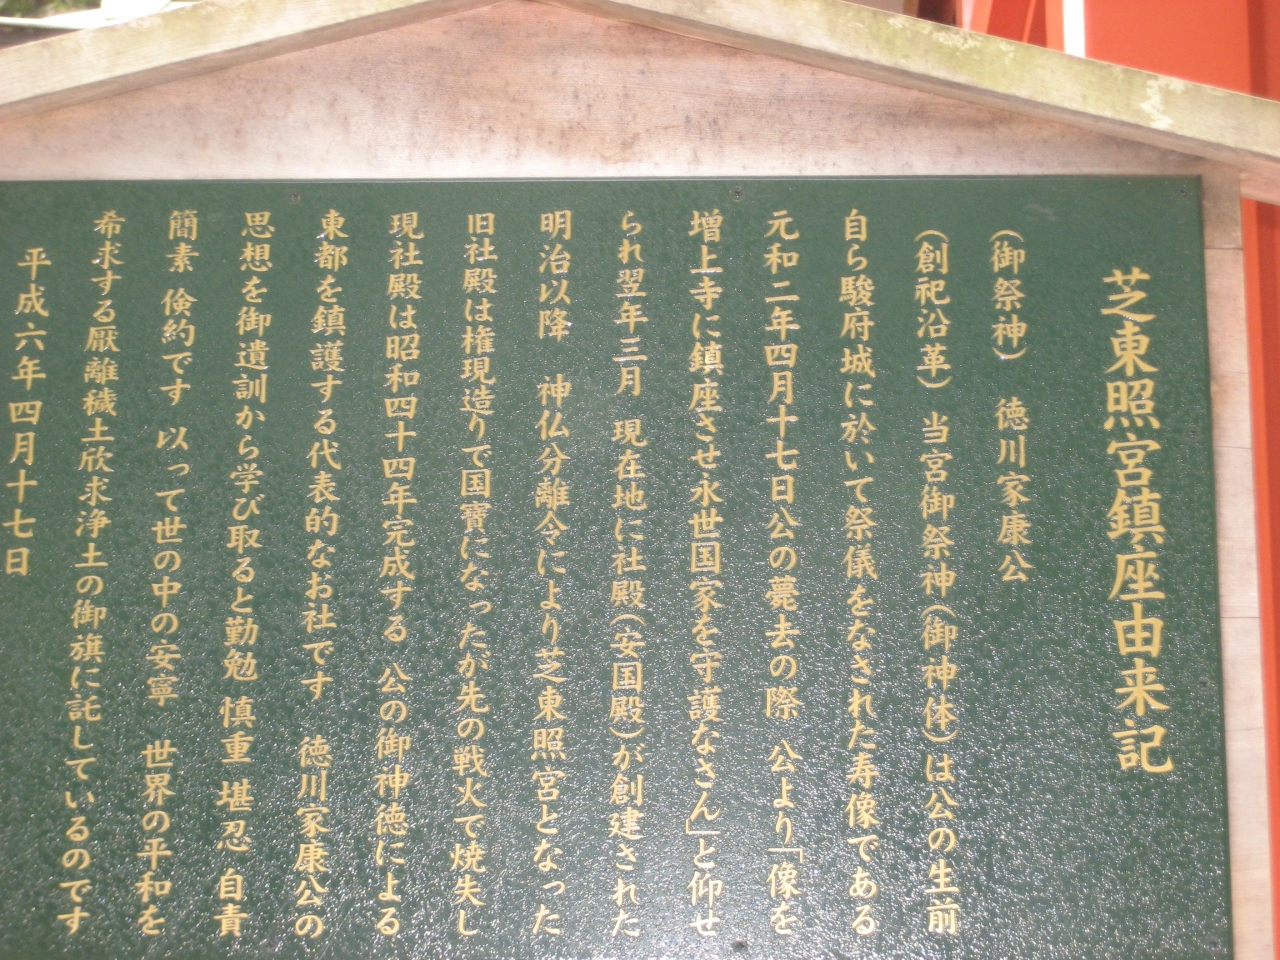 芝東照宮鎮座由来記
(御祭神) 徳川家康公
(創祀沿革) 当宮御祭神(御神体)は公の生前
自ら駿府城に於いて祭儀をなされた寿像である
元和二年四月十七日公の薨去の際 公より「像を
増上寺に鎮座させ永世国家を守護なさん」と仰せ
られ翌年三月 現在地に社殿(安国殿)が創建された
明治以降 神仏分離令により芝東照宮となった
旧社殿は権現造りで国寶になったが先の戦火で焼失し
現社殿は昭和四十四年完成する 公の御神徳による
東都を鎮護する代表的なお社です 徳川家康公の
思想を御遺訓から学び取ると勤勉 慎重 堪忍 自責
簡素 倹約です 以って世の中の安寧 世界の平和を
希求する厭離穢土欣求浄土の御旗に託しているのです
平成六年四月十七日